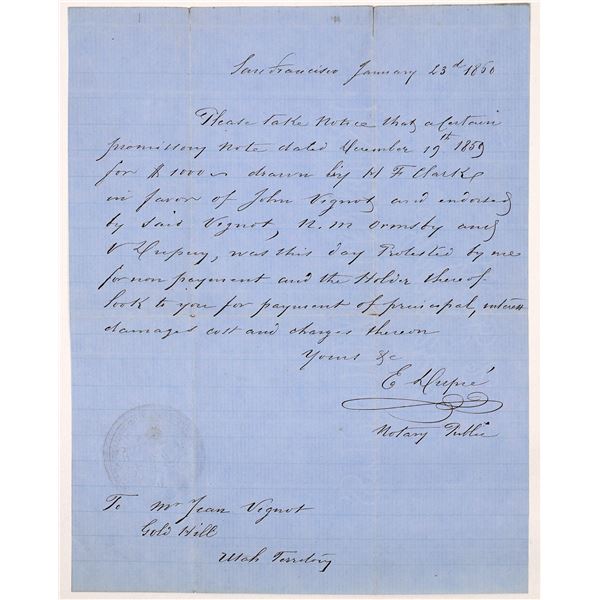 San Francisco January 23d 1860
Please take Notice that a Certain
promissory Note dated December 19th 1859
for $1000 drawn by H F Clark
in favor of John Vignot and endorsed
by said Vignot, N. M Ormsby and
V Dupuy, was this day Protested by me
for non payment and the Holder thereof
look to you for payment of principal, interest
damages cost and charges thereon
Yours &c
E Dupré
Notary Public
To Mr Jean Vignot
Gold Hill
Utah Territory